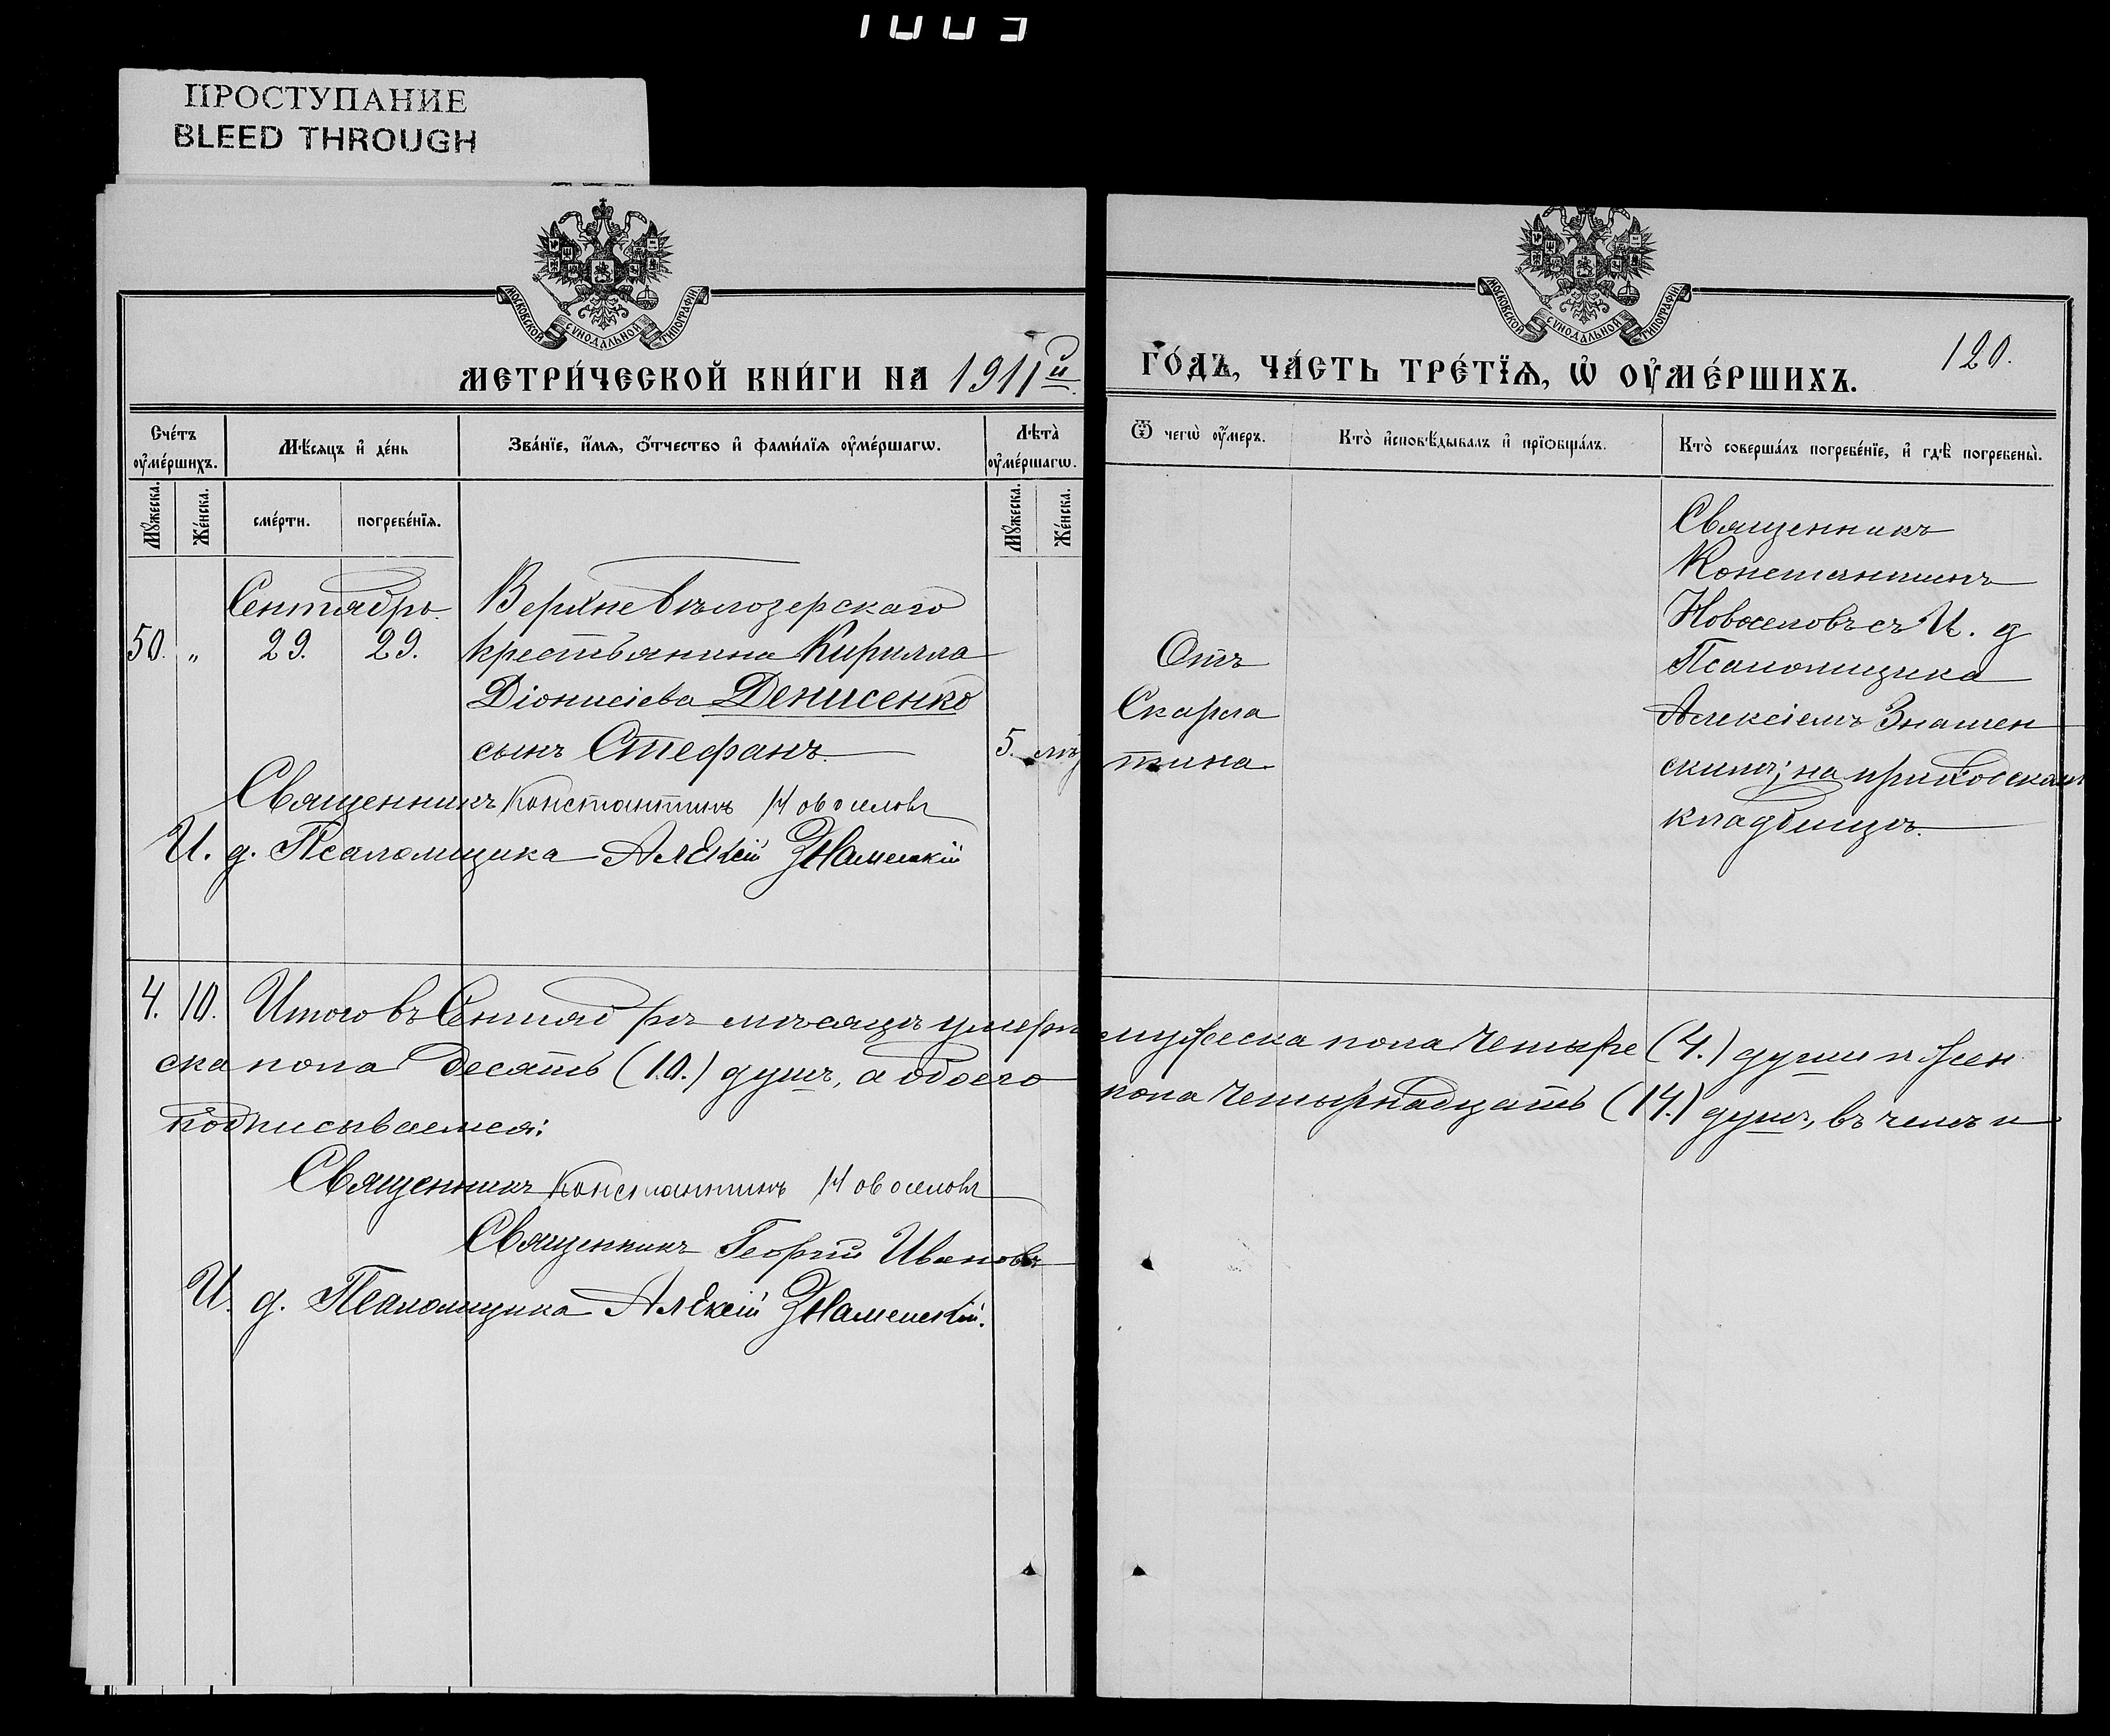 1003
ПРОСТУПАНИЕ
BLEED THROUGH
МОСКОВСКОЙ СѴНОДАЛЬНОЙ ТИПОГРАФІИ
МОСКОВСКОЙ СѴНОДАЛЬНОЙ ТИПОГРАФІИ
МЕТРИ́ЧЕСКОЙ КНИ́ГИ НА 1911й
ГО́ДЪ, ЧА́СТЬ ТРЕ́ТЇѦ, Ѡ ОУ҆МЕ́РШИХЪ.
120.
Сче́тъ оу҆ме́ршихъ.
Мѣ́сяцъ и҆ де́нь
Зва́нїе, и҆́мѧ, ѻ҆́тчество и҆ фами́лїѧ оу҆ме́ршагѡ.
Лѣта̀ оу҆ме́ршагѡ.
Ѿ чегѡ̀ оу҆́меръ.
Кто̀ и҆сповѣ́дывалъ и҆ прїѻбща́лъ.
Кто̀ соверша́лъ погребе́нїе, и҆ гдѣ̀ погребены̀.
Мꙋ́жеска.
Же́нска.
сме́рти.
погребе́нїѧ.
Мꙋ́жеска.
Же́нска.
Сентябрь
50. „ 29. 29.
Верхнебѣлозерскаго
крестьянина Кирилла
Діонисіева Денисенко
сынъ Стефанъ.
5. лѣт
Отъ
Скарла
тина
Священникъ
Константинъ
Новоселовъ съ И. д
Псаломщика
Алексіемъ Знамен
скимъ; на приходскомъ
кладбищѣ.
Священникъ Константинъ Новоселовъ
И. д. Псаломщика Алексій Знаменскій
4. 10. Итого въ Сентябрѣ мѣсяцѣ умерло мужеска пола четыре (4.) души и жен
ска пола десять (10.) душъ, а обоего пола четырнадцать (14.) душъ, въ чемъ и
подписываемся:
Священникъ Константинъ Новоселовъ
Священникъ Георгій Ивановъ
И. д. Псаломщика Алексій Знаменскій.